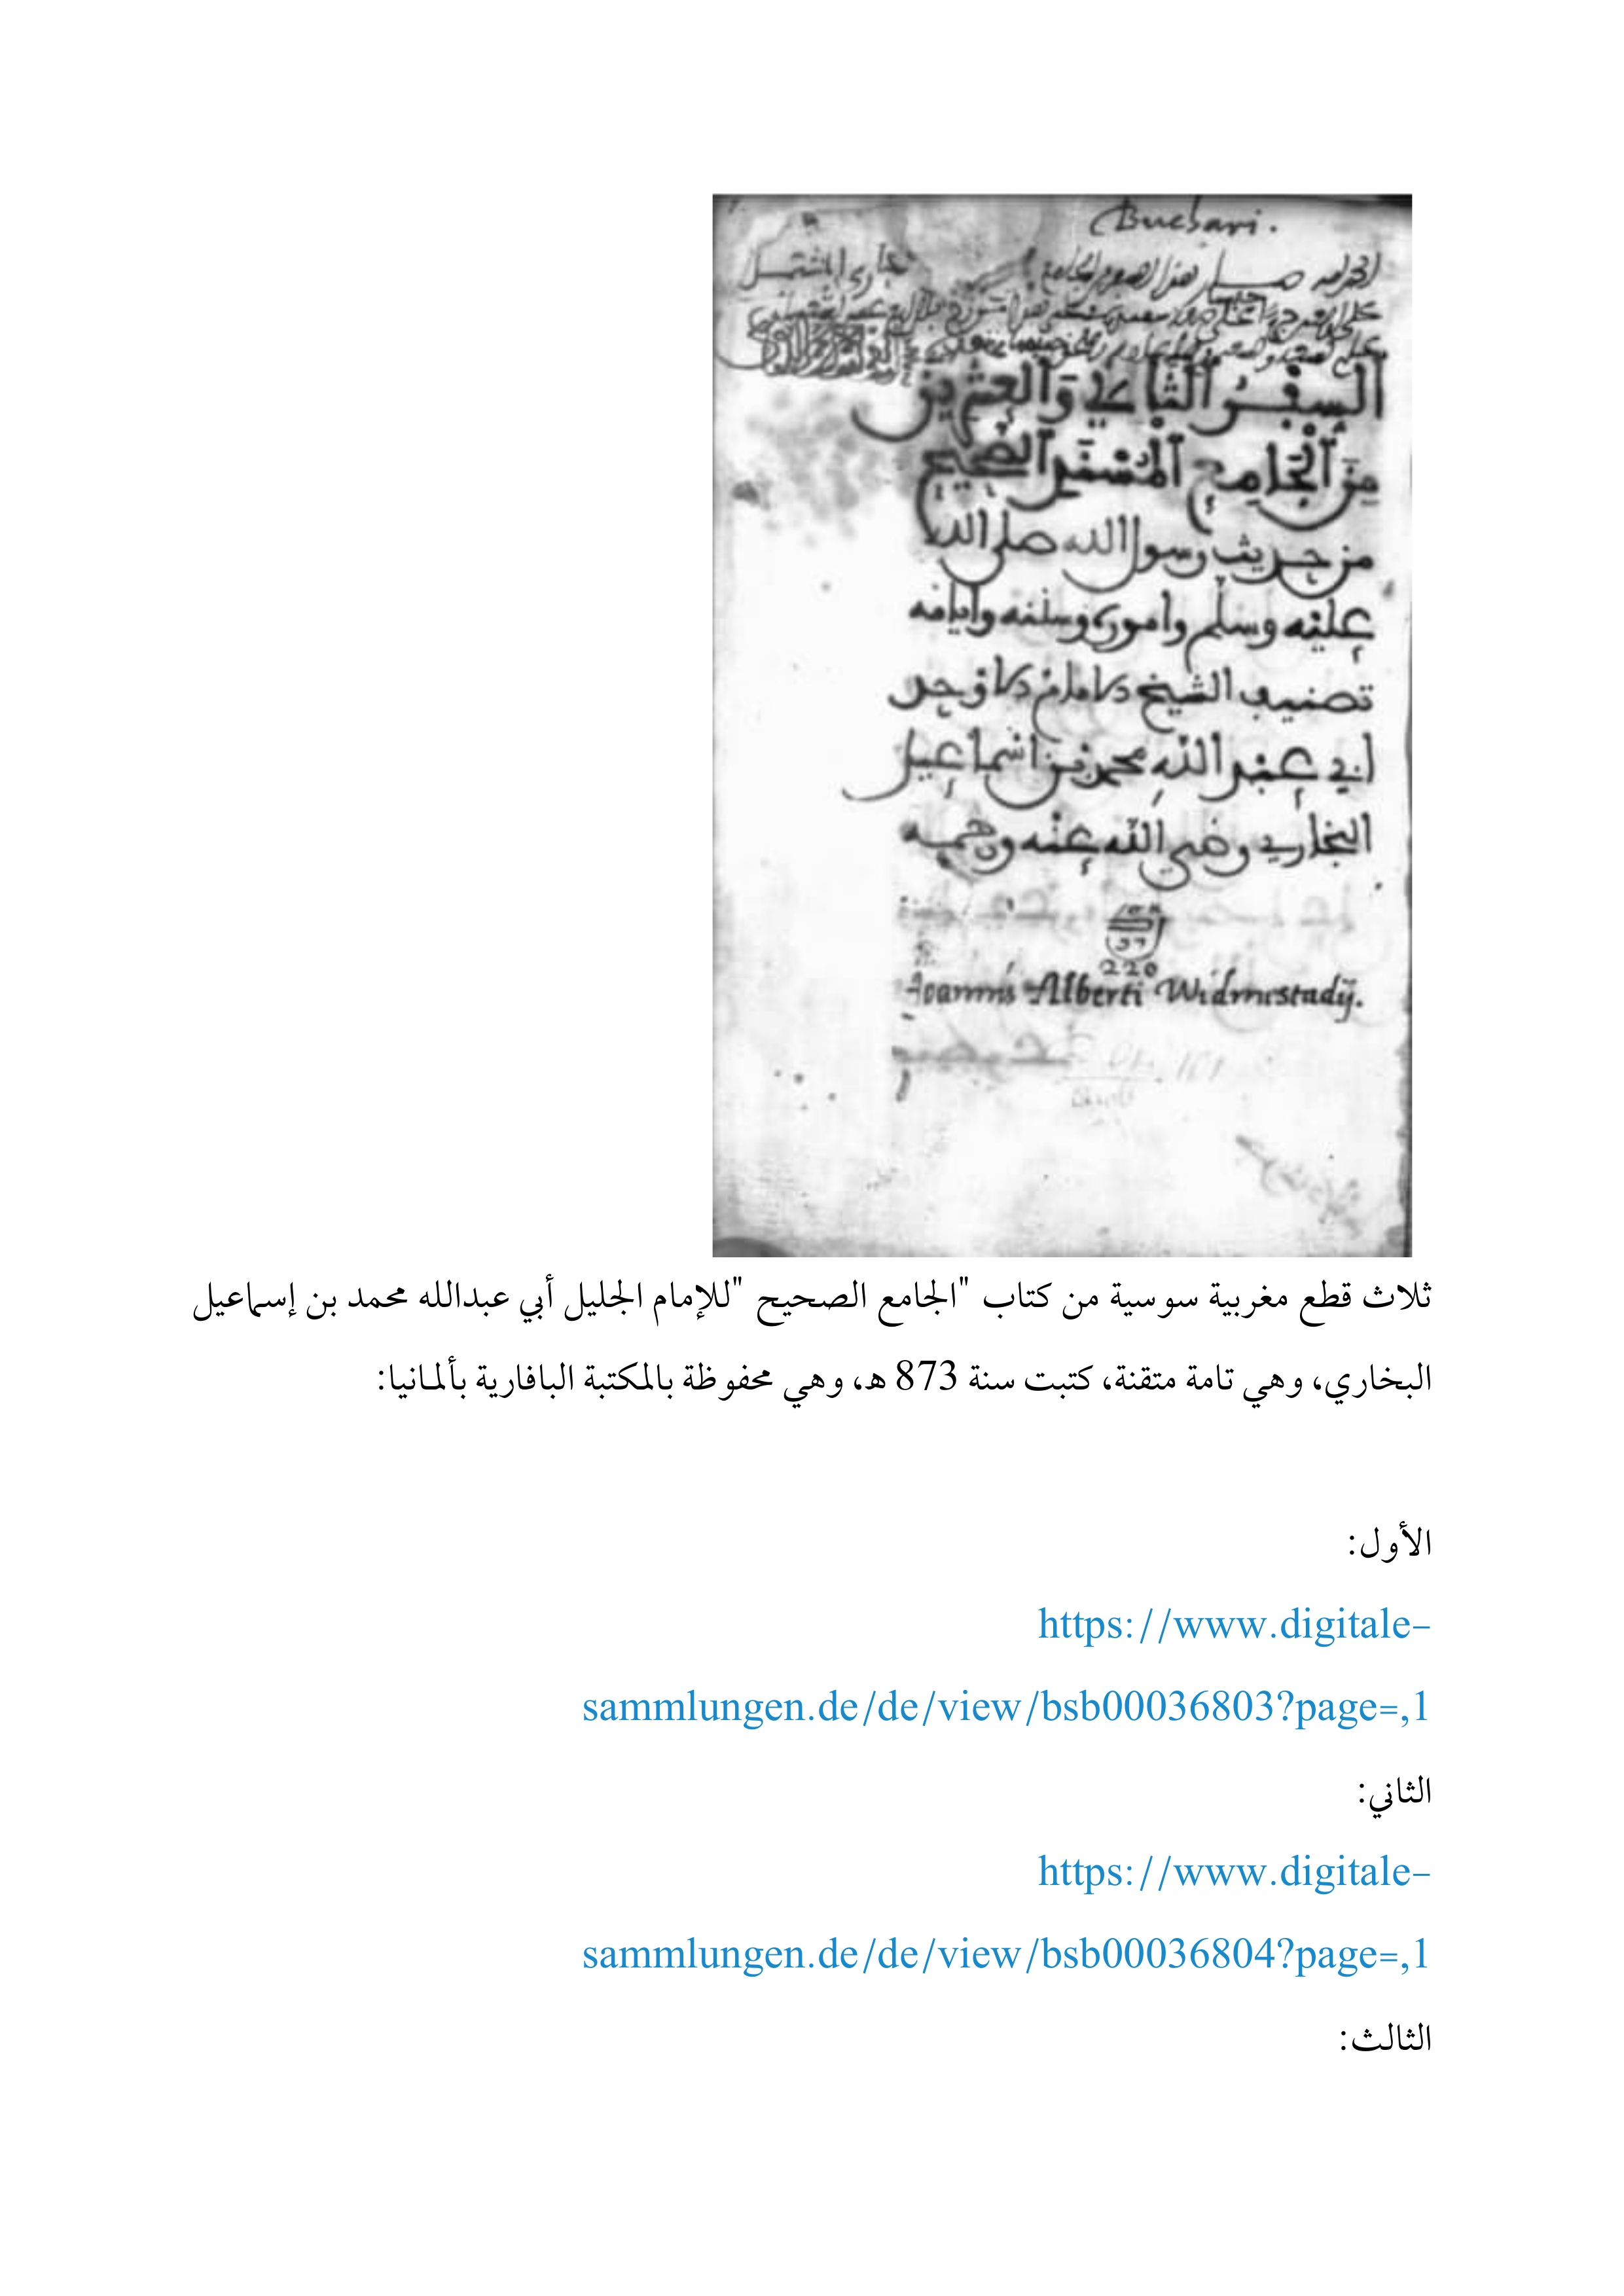 Buchari.
السِّفْرُ الثَّانِي وَالعِشْرِين
مِنَ الْجَامِعِ الْمُسْنَدِ الصَّحِيحِ
من حديث رسول الله صلى الله
عليه وسلم وأموره وسننه وأيامه
تصنيف الشيخ الامام الاوحد
أبي عبد الله محمد بن اسماعيل
البخاري رضي الله عنه ورحمه
220
Joannis Alberti Widmestadij.
ثلاث قطع مغربية سوسية من كتاب "الجامع الصحيح "للإمام الجليل أبي عبدالله محمد بن إسماعيل
البخاري، وهي تامة متقنة، كتبت سنة 873 هـ، وهي محفوظة بالمكتبة البافارية بألمانيا:
الأول:
https://www.digitale-
sammlungen.de/de/view/bsb00036803?page=,1
الثاني:
https://www.digitale-
sammlungen.de/de/view/bsb00036804?page=,1
الثالث: